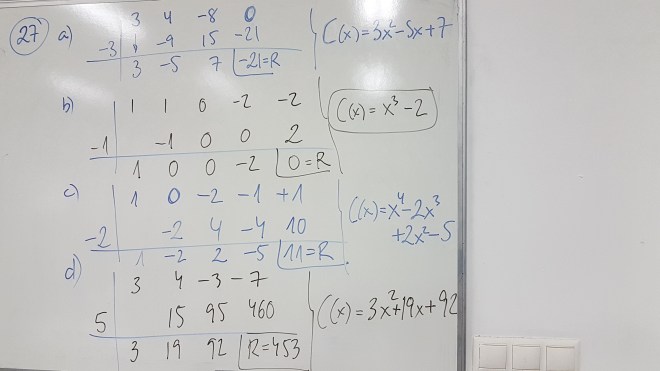 27 a) 3 4 -8 0
-3 ↓ -9 15 -21
3 -5 7 -21=R
C(x)=3x²-5x+7
b) 1 1 0 -2 -2
-1 -1 0 0 2
1 0 0 -2 0=R
C(x)=x³-2
c) 1 0 -2 -1 +1
-2 -2 4 -4 10
1 -2 2 -5 11=R
C(x)=x⁴-2x³
+2x²-5
d) 3 4 -3 -7
5 15 95 460
3 19 92 R=453
C(x)=3x²+19x+92